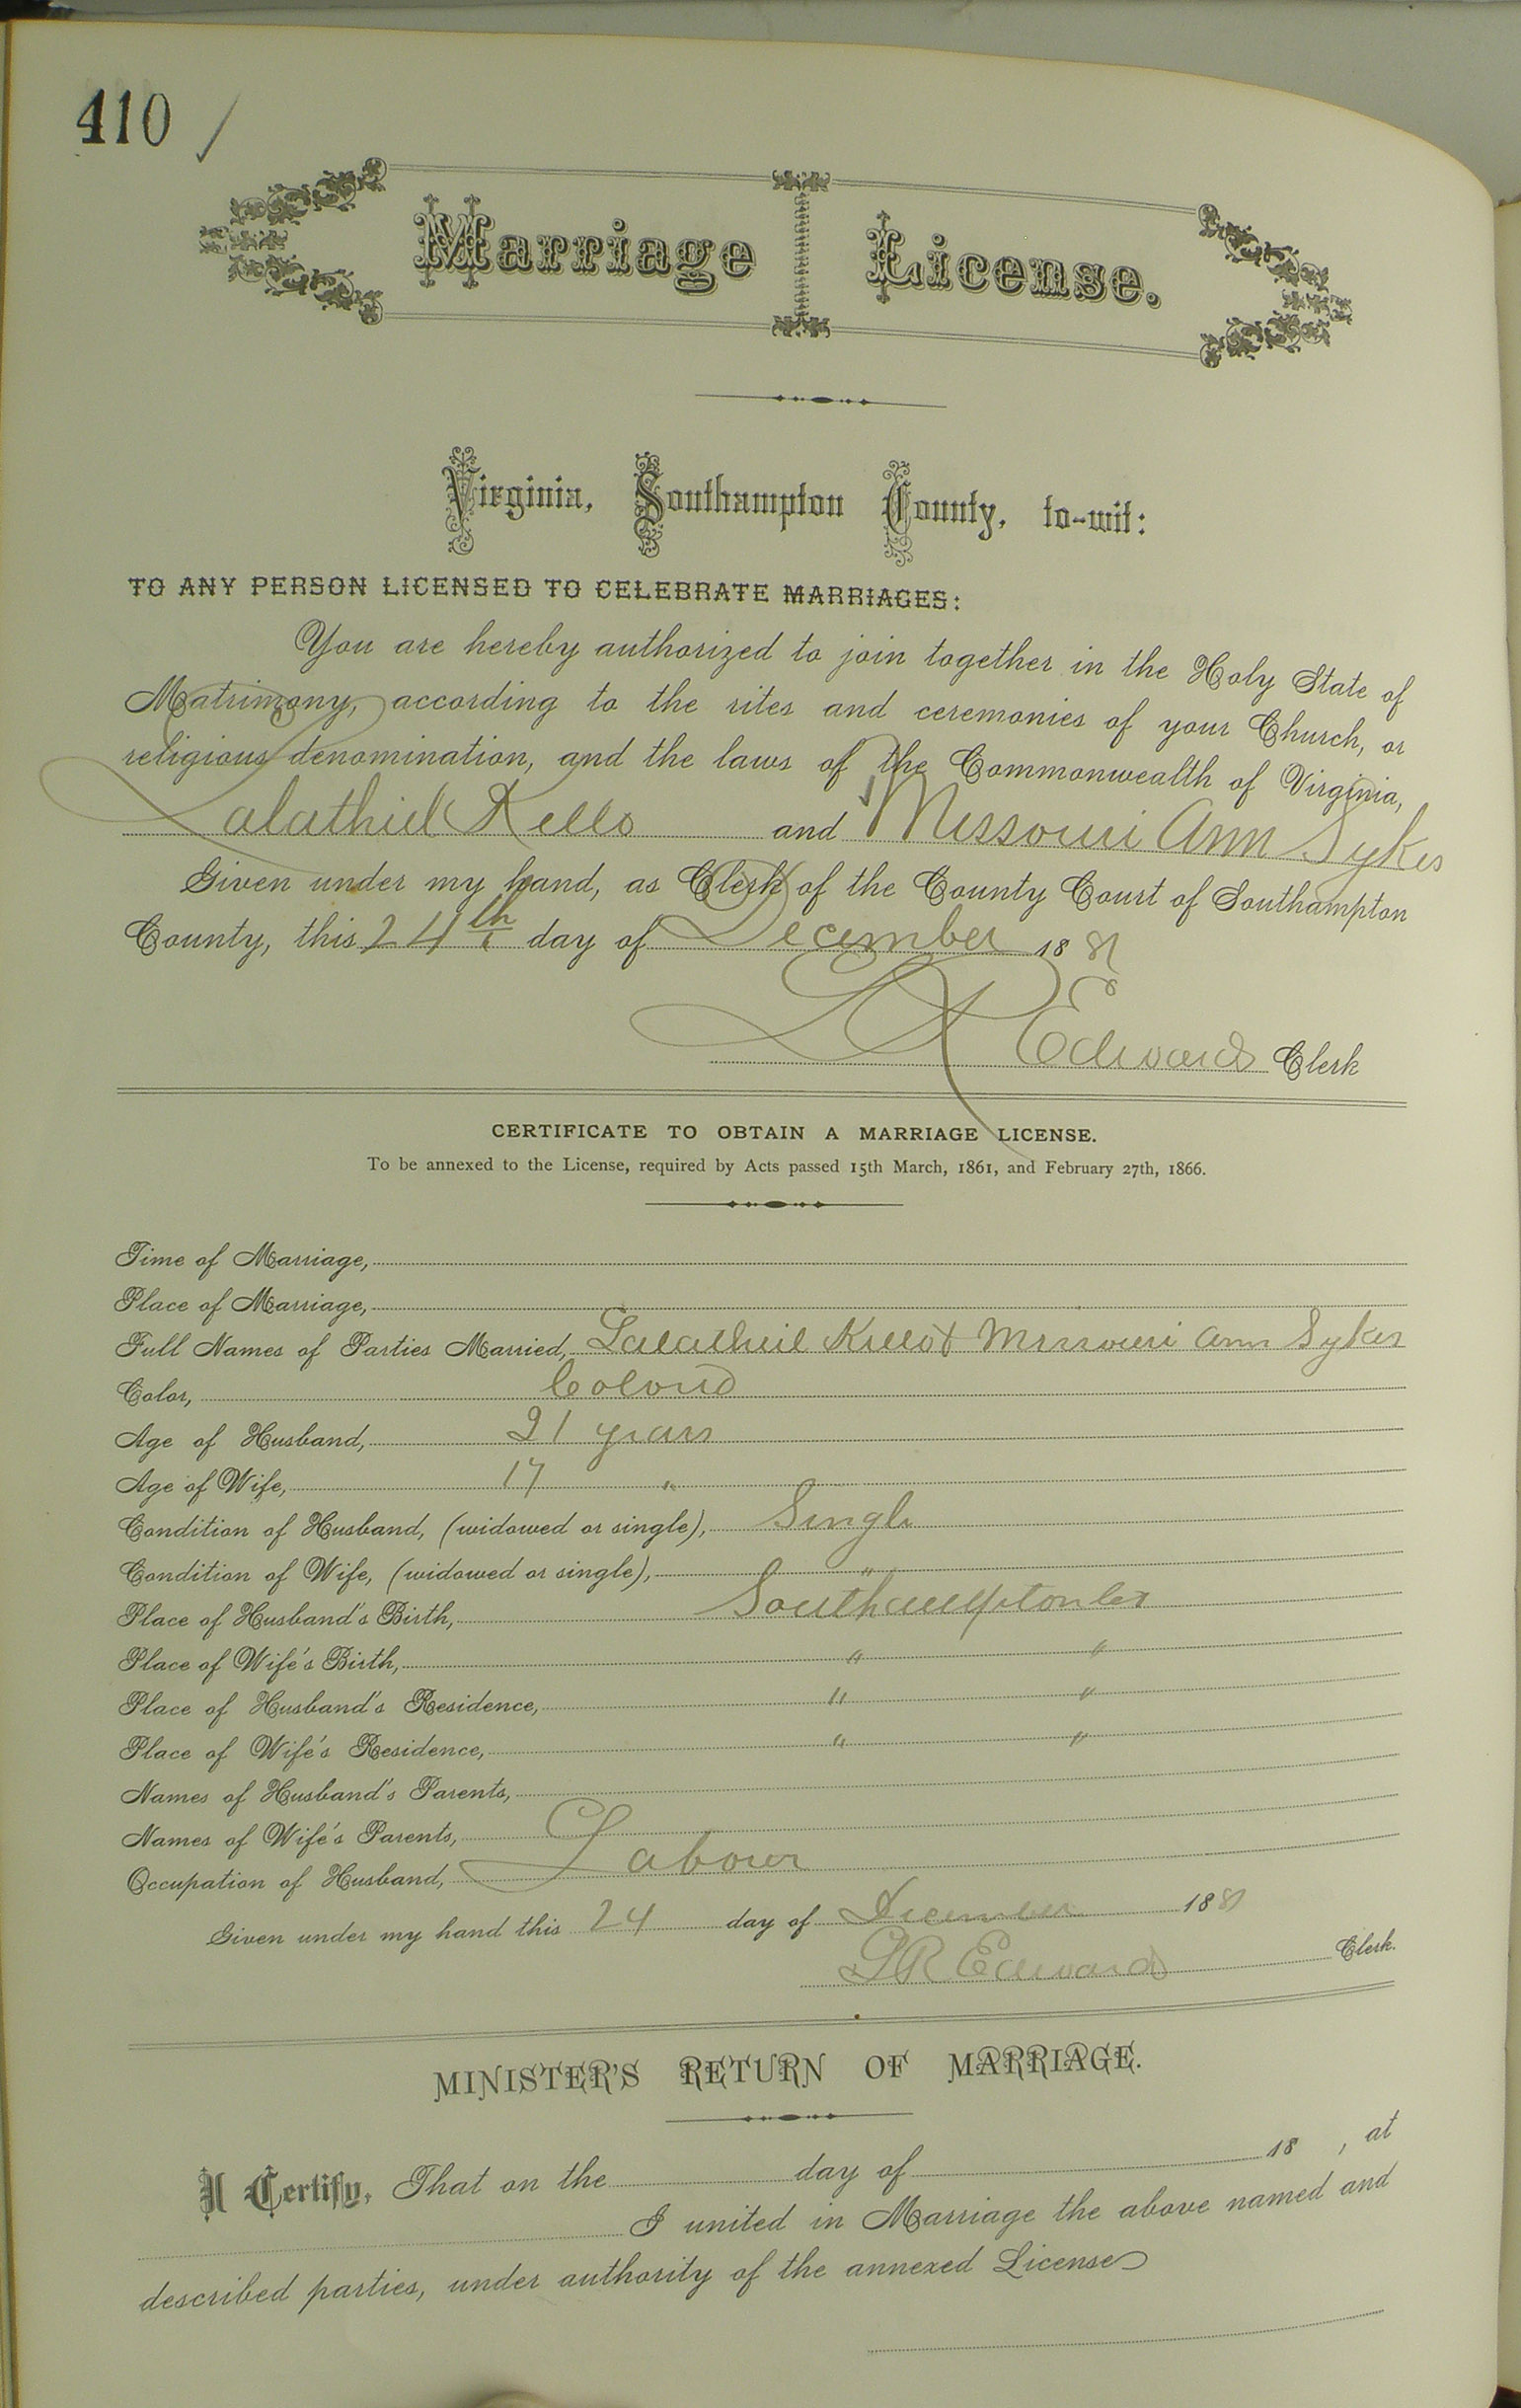 410 /
Marriage License.
Virginia, Southampton County, to-wit:
TO ANY PERSON LICENSED TO CELEBRATE MARRIAGES:
You are hereby authorized to join together in the Holy State of
Matrimony, according to the rites and ceremonies of your Church, or
religious denomination, and the laws of the Commonwealth of Virginia,
Lalathiel Kello and Missouri Ann Sykes
Given under my hand, as Clerk of the County Court of Southampton
County, this 24th day of December 1881
L R Edwards Clerk
CERTIFICATE TO OBTAIN A MARRIAGE LICENSE.
To be annexed to the License, required by Acts passed 15th March, 1861, and February 27th, 1866.
Time of Marriage,
Place of Marriage,
Full Names of Parties Married, Lalathiel Kello & Missouri Ann Sykes
Color, Colord
Age of Husband, 21 years
Age of Wife, 17 "
Condition of Husband, (widowed or single), Single
Condition of Wife, (widowed or single), "
Place of Husband's Birth, Southampton Co
Place of Wife's Birth, " "
Place of Husband's Residence, " "
Place of Wife's Residence, " "
Names of Husband's Parents,
Names of Wife's Parents,
Occupation of Husband, Labour
Given under my hand this 24 day of December 1881
L R Edwards Clerk.
MINISTER'S RETURN OF MARRIAGE.
I Certify, That on the day of 18 , at
I united in Marriage the above named and
described parties, under authority of the annexed License